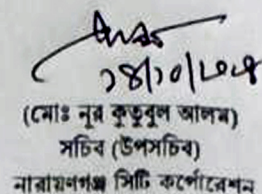 (মোঃ নূর কুতুবুল আলম)
সচিব (উপসচিব)
নারায়ণগঞ্জ সিটি কর্পোরেশন